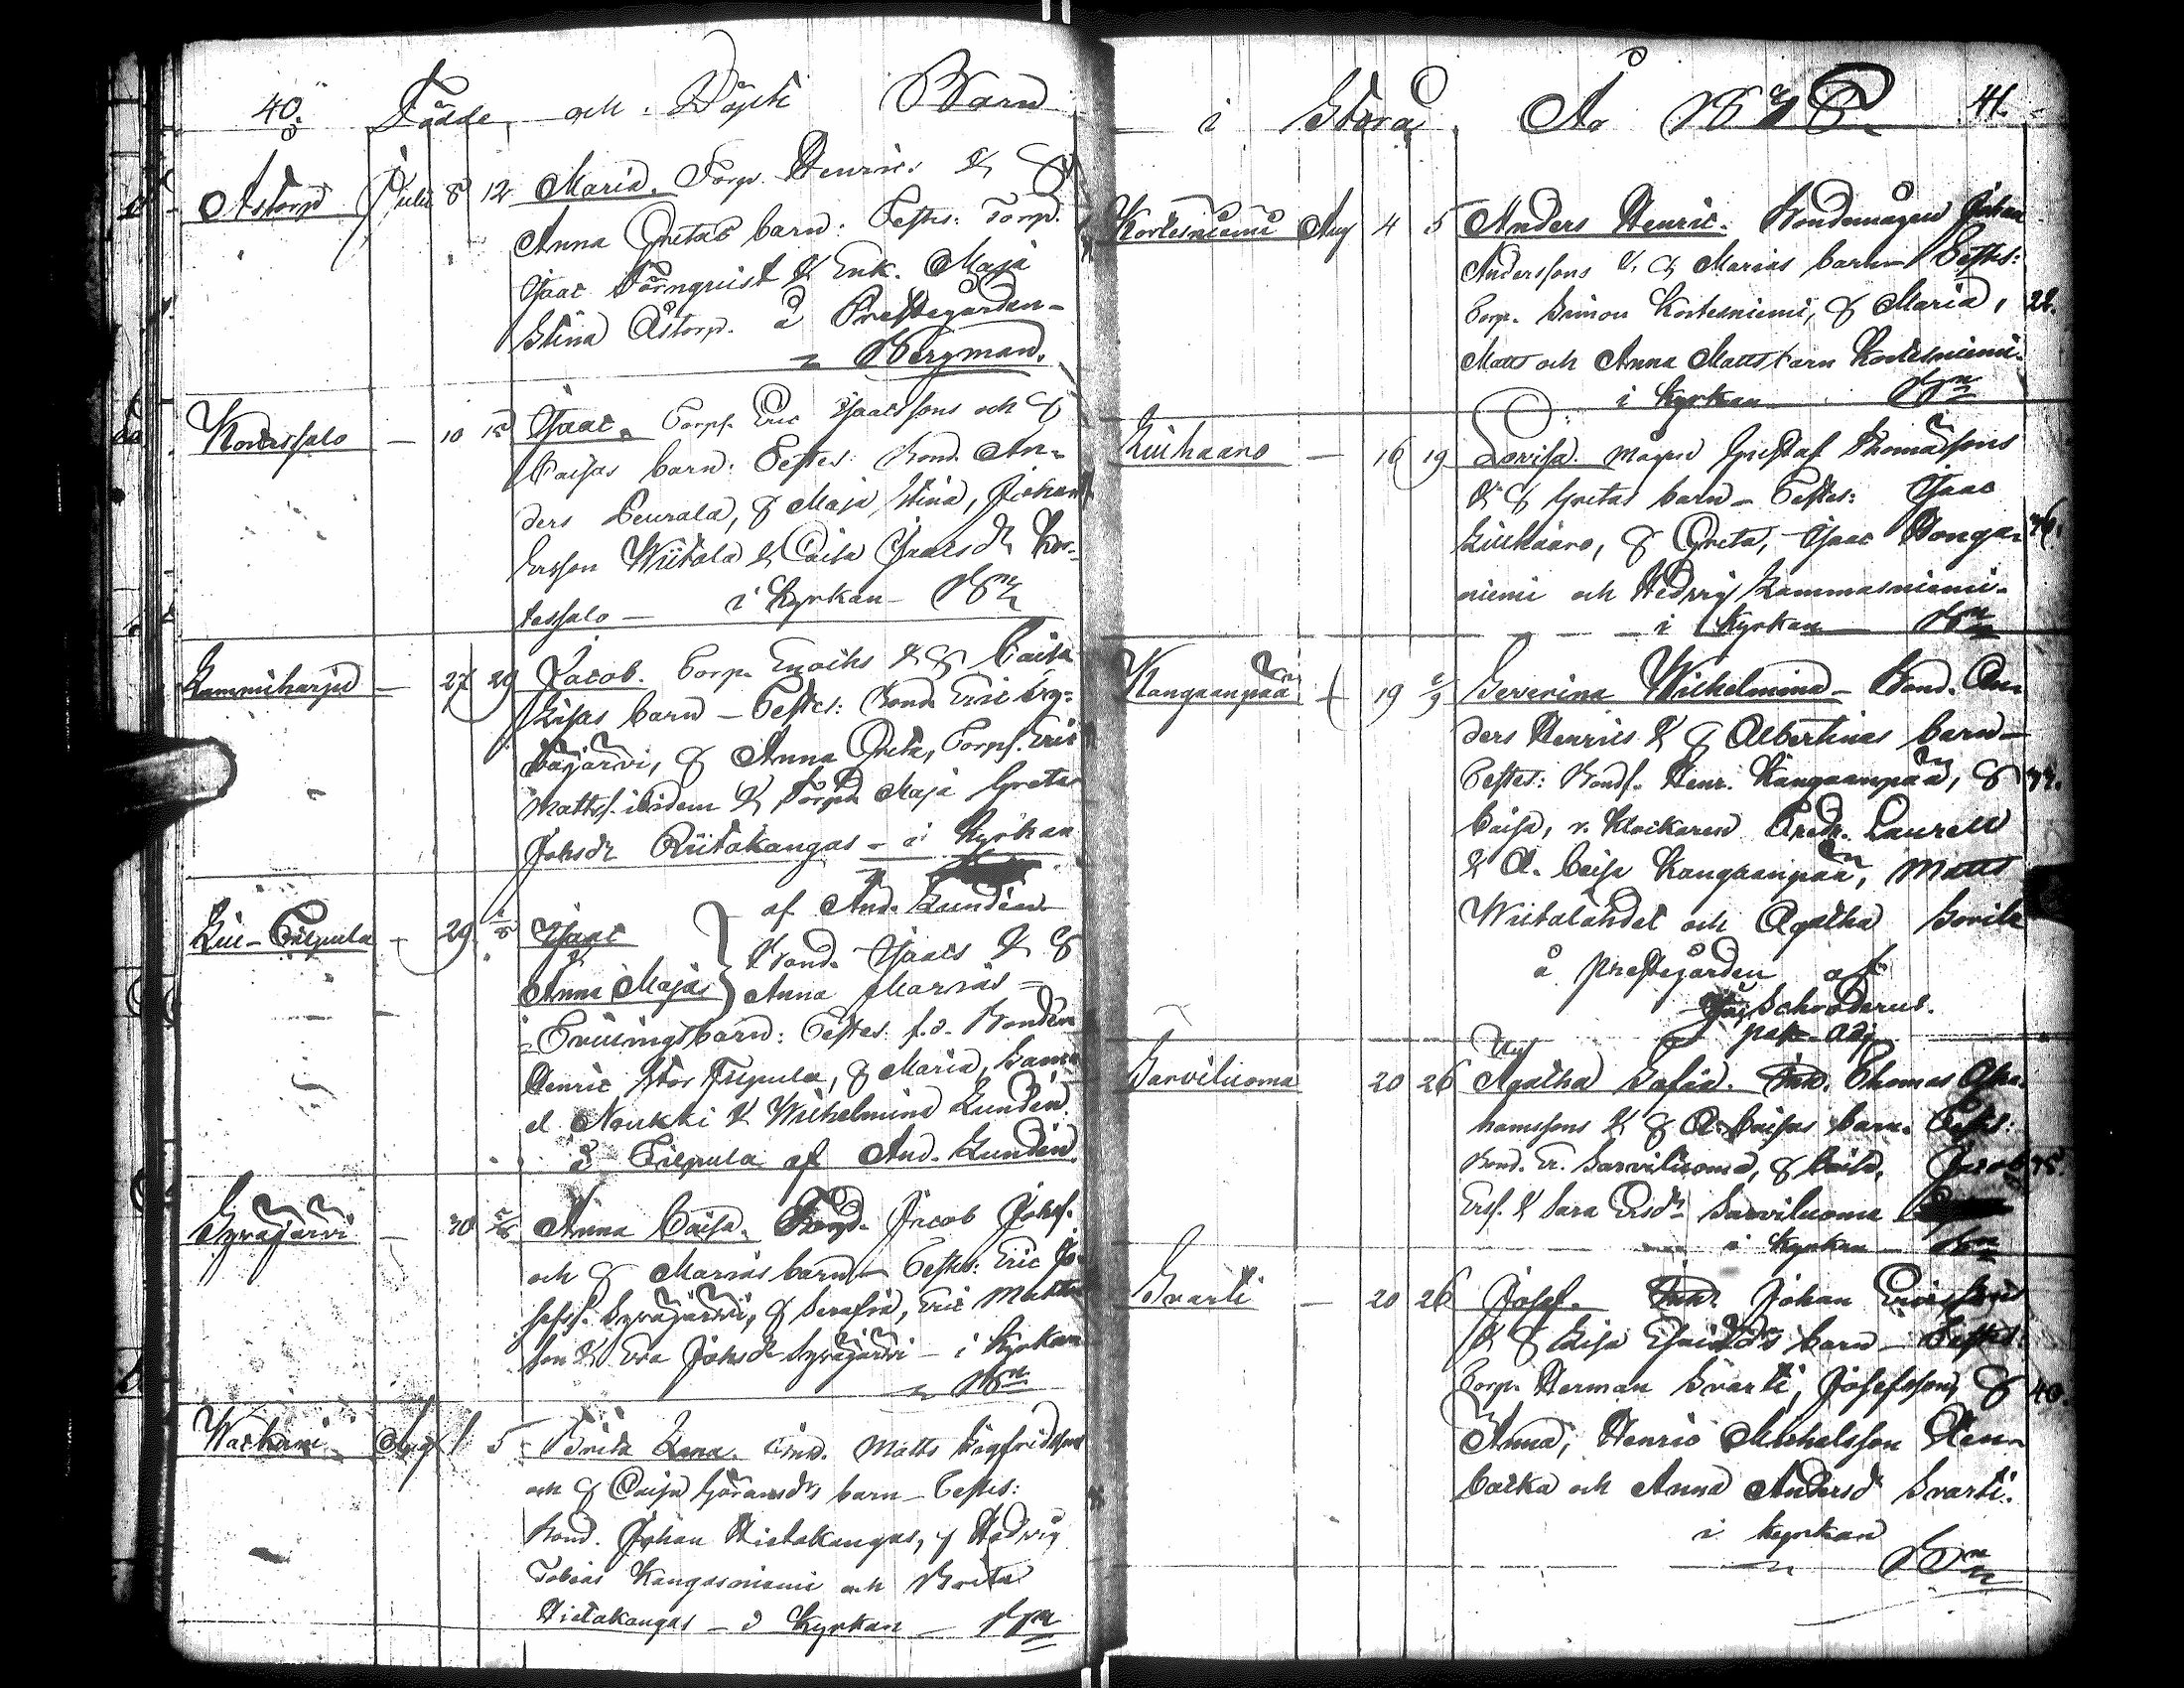 40.
Födde och Döpte Barn
Åstorp Julii 8 12 Maria. Torp. Henrics & H
Anna Gretas barn: Testes: Torp.
Isaac Törnqvist & Enk. Maja
Stina Åstorp. å Prestegården
Bergman.
Kortessalo — 10 15 Isaac. Torp. Eric Isaacssons och H
Caisas barn: Testes: Bond. An-
ders Peurala, H Maja Stina, Johan
Ersson Wiitala & Caisa Isaacsdr Kor-
tessalo — i Kyrkan — Bn
Lammiharju — 27 29 Jacob. Torp. Enochs & H Caisa
Lisas barn — Testes: Bond. Eric Sy-
väjärvi, H Anna Greta, Torps. Eric
Mattss. ibidem & Torpd. Maja Greta
Johsdr Riitakangas — i Kyrkan
Lill-Filpula — 29 Isaac & Anna Maja
af And. Lundén
Bond. Isaacs & H
Anna Marias
Tvillingsbarn: Testes: f.d. Bonden
Henric Stor Filpula, H Maria, Samu
el Noukki & Wilhelmina Lundén
å Filpula af And. Lundén.
Syväjärvi — 30 Anna Caisa. Jacob Johss.
och H Marias barn — Testes: Eric Jo-
sefss. Syväjärvi, H Serafia, Eric Matts
son & Eva Johsdr Syväjärvi — i Kyrkan
Bn
Aug 1 5 Brita Lena. Inh. Matts Sigfridssons
och H Caisa Göransdrs barn — Testes:
Bond. Johan Hietakangas, H Hedvig
Tobias Kangasniemi och Brita
Hietakangas — i Kyrkan — Bn
i Storå År 41.
Kortesniemi Aug 4 5 Anders Henric. Bondemågen Johan
Anderssons & H Marias barn — Testes:
Torp. Simon Kortesniemi, H Maria, 28.
Matts och Anna Mattsbarn Kortesniemi.
i Kyrkan — Bn
Liuhaaro — 16 19 Lovisa. mågen Gustaf Thomassons
& H Gretas barn — Testes: Isaac
Liuhaaro, H Greta, Isaac Honga-
niemi och Hedvig Lammasniemi.
i Kyrkan — Bn
Kangaanpää 19 Severina Wilhelmina — Bond. An-
ders Henrics & H Albertinas barn —
Testes: Bonds. Henr. Kangaanpää, H
Caisa, v. Klockaren Fredr. Laurell
& A. Caisa Kangaanpää, Matts
Wiitalähdet och Agatha
å Prestegården af
Schroderus.
past. adj.
Sarviluoma 20 26 Agatha Sofia. Inh. Thomas Abra-
hamssons & H A. Caisas barn. Testes:
Bond. Er. Sarviluoma, H Caisa, Jacob
Erss. & Sara Ersdr Sarviluoma
i Kyrkan — Bn
Svarti — 20 26 Josef. Inh. Johan Ericssons
& H Lisa Esaiædrs barn — Testes:
Torp. Herman Svarti, Josefsson, H 40.
Anna, Henric Michelsson Sten-
backa och Anna Andersdr Svarti.
i kyrkan
Bn